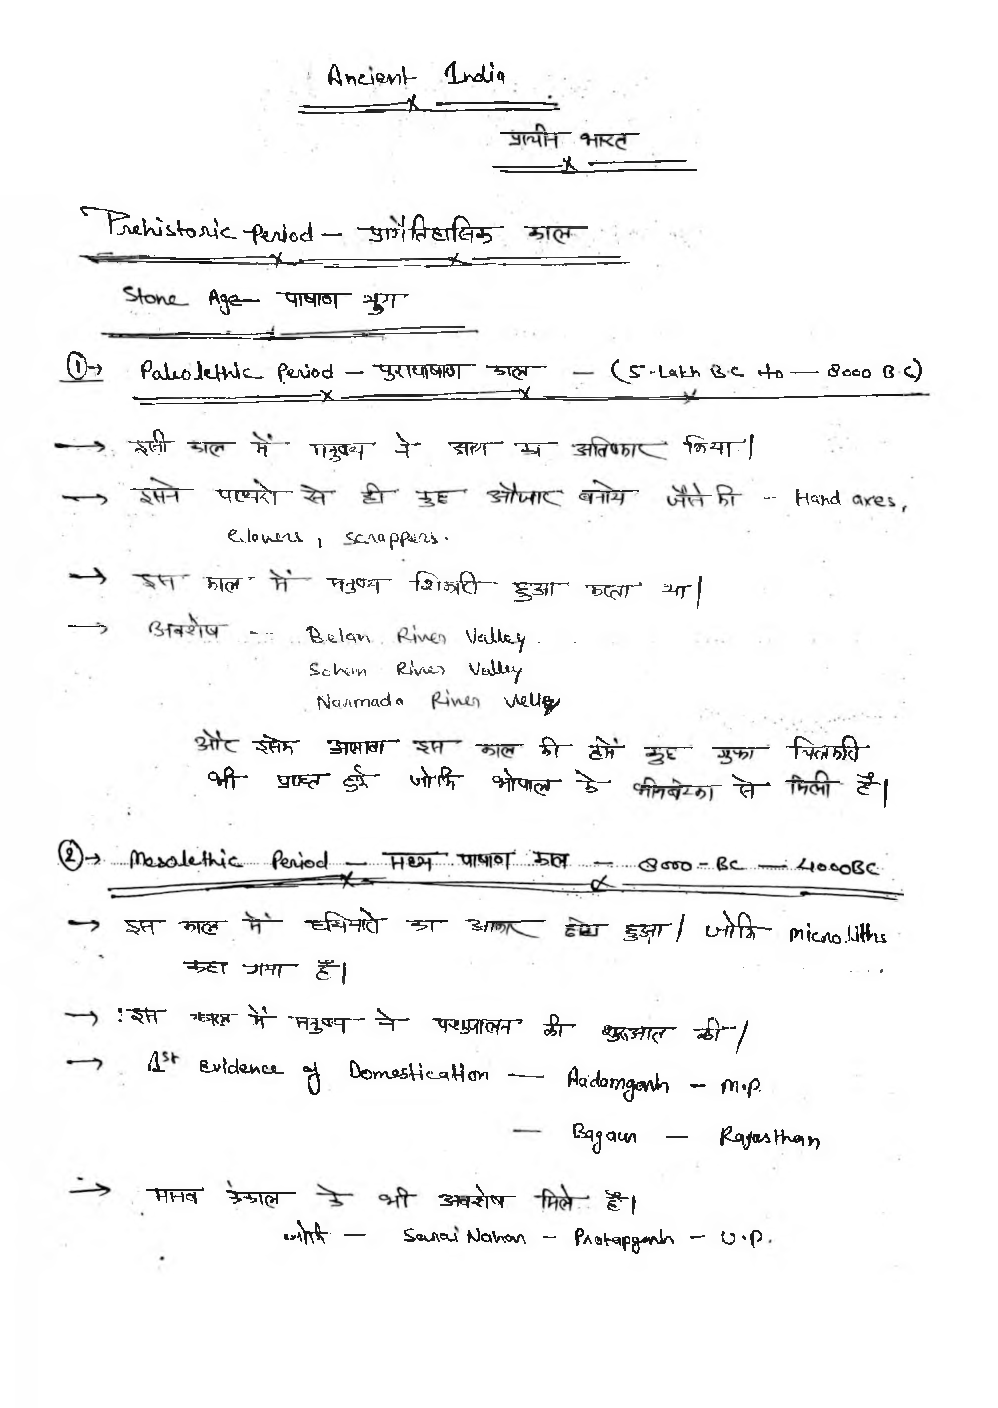 Ancient India
प्राचीन भारत
Prehistoric Period — प्रागैतिहासिक काल
Stone Age — पाषाण युग
① → Paleolethic Period — पुरापाषाण काल — (5-Lakh B.C to — 8000 B.C)
→ इसी काल में मनुष्य ने आग का अविष्कार किया।
→ इसने पत्थरो से ही कुछ औजार बनाये जैसे की -- Hand axes,
Clevers, Scrappers.
→ इस काल में मनुष्य शिकारी हुआ करता था।
→ अवशेष -- Belan River Valley.
Sohan River Valley
Narmada River Velley
और इसके अलावा इस काल की हमें कुछ गुफा चित्रकारी
भी प्राप्त हुई जोकि भोपाल के भीमबेटका से मिली है।
② → Mesolethic Period — मध्य पाषाण काल — 8000 - BC — 4000BC
→ इस काल में हथियारो का आकार छोटा हुआ। जोकि microliths
कहा गया है।
→ इस काल में मनुष्य ने पशुपालन की शुरूआत की।
→ 1st Evidence of Domestication — Aadamgarh - M.P.
— Bagaur — Rajasthan
→ मानव कंकाल के भी अवशेष मिले है।
— Sarai Nahar - Pratapgarh - U.P.